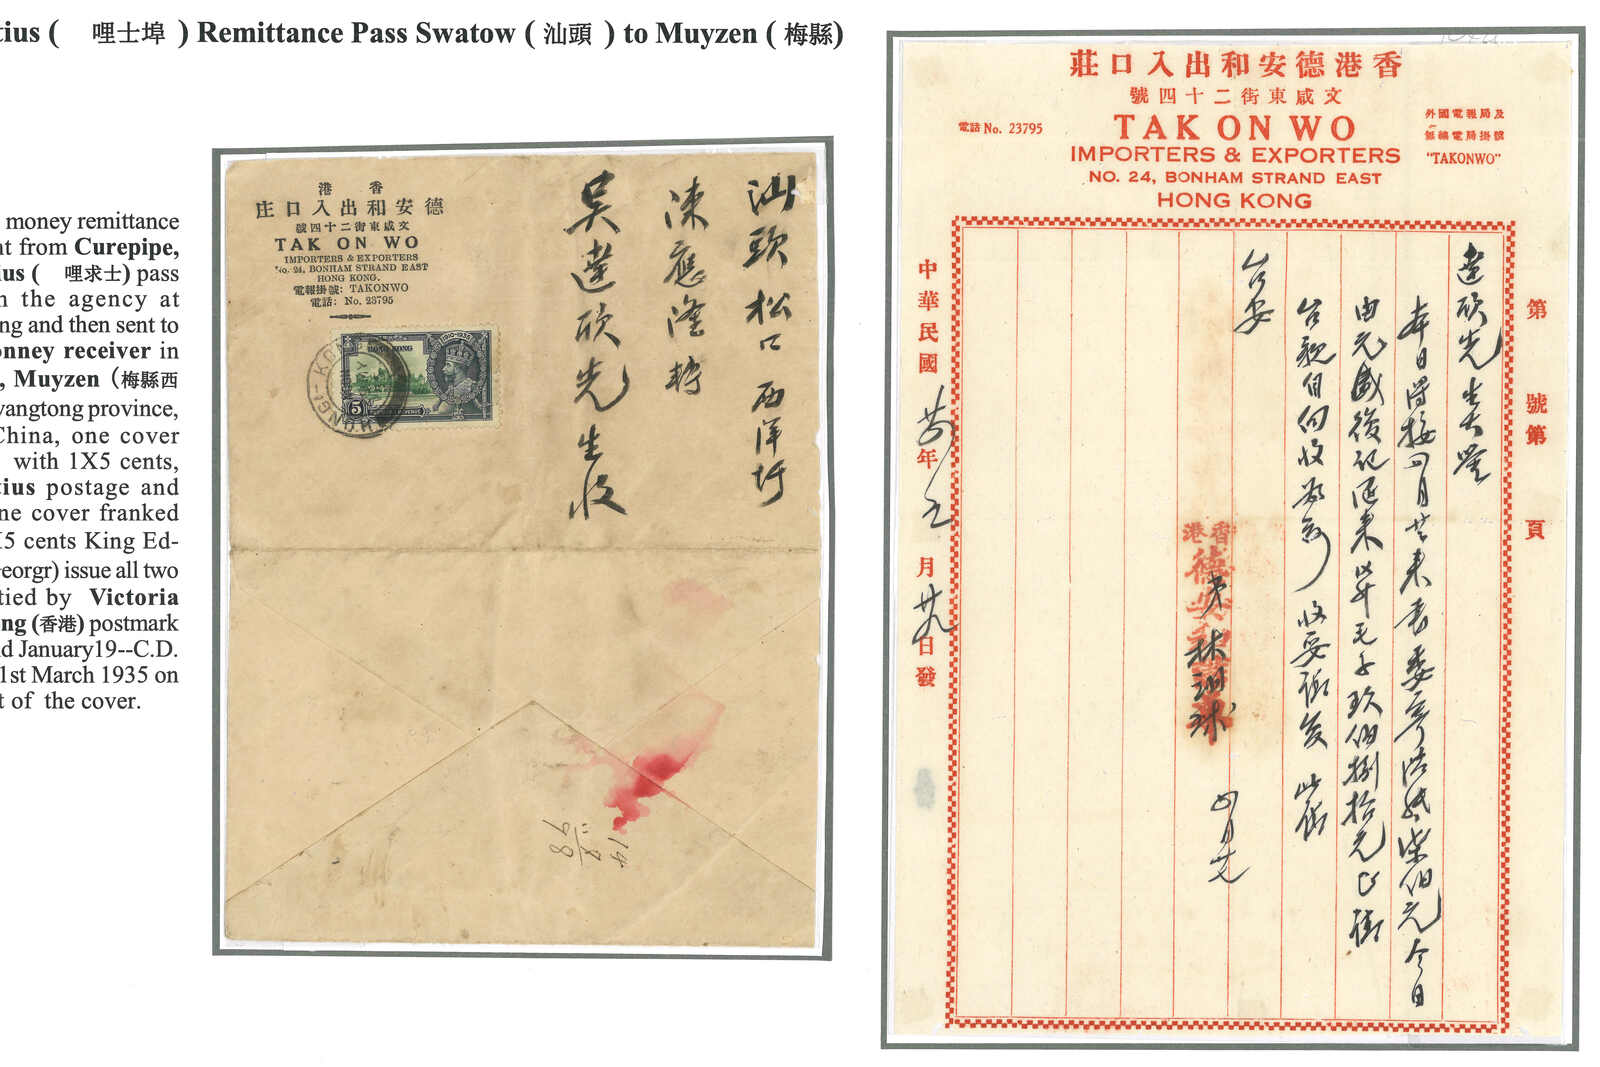 tius ( 哩士埠 ) Remittance Pass Swatow ( 汕頭 ) to Muyzen ( 梅縣)
money remittance
nt from Curepipe,
ius ( 哩求士) pass
n the agency at
ng and then sent to
onney receiver in
, Muyzen (梅縣西
vangtong province,
China, one cover
with 1X5 cents,
tius postage and
ne cover franked
X5 cents King Ed-
eorgr) issue all two
tied by Victoria
ng (香港) postmark
d January19--C.D.
1st March 1935 on
t of the cover.
港香
庄口入出和安德
號四十二街東咸文
TAK ON WO
IMPORTERS & EXPORTERS
No. 24, BONHAM STRAND EAST
HONG KONG.
電報掛號: TAKONWO
電話: No. 23795
HONG KONG
1910-1935
5
汕頭松口西洋圩
陳應隆轉
吳達欣先生收
莊口入出和安德港香
號四十二街東咸文
TAK ON WO
IMPORTERS & EXPORTERS
NO. 24, BONHAM STRAND EAST
HONG KONG
電話 No. 23795
外國電報局及
無線電局掛號
"TAKONWO"
第 號第 頁
達欣先生大鑒
本日得接四月廿來書委寄港紙柒佰元今日
由元盛後記匯來毫子玖佰捌拾元
台親自向收 收妥
台安
港香
德安和
弟林
四月廿
中華民國 年 五 月 廿九 日發